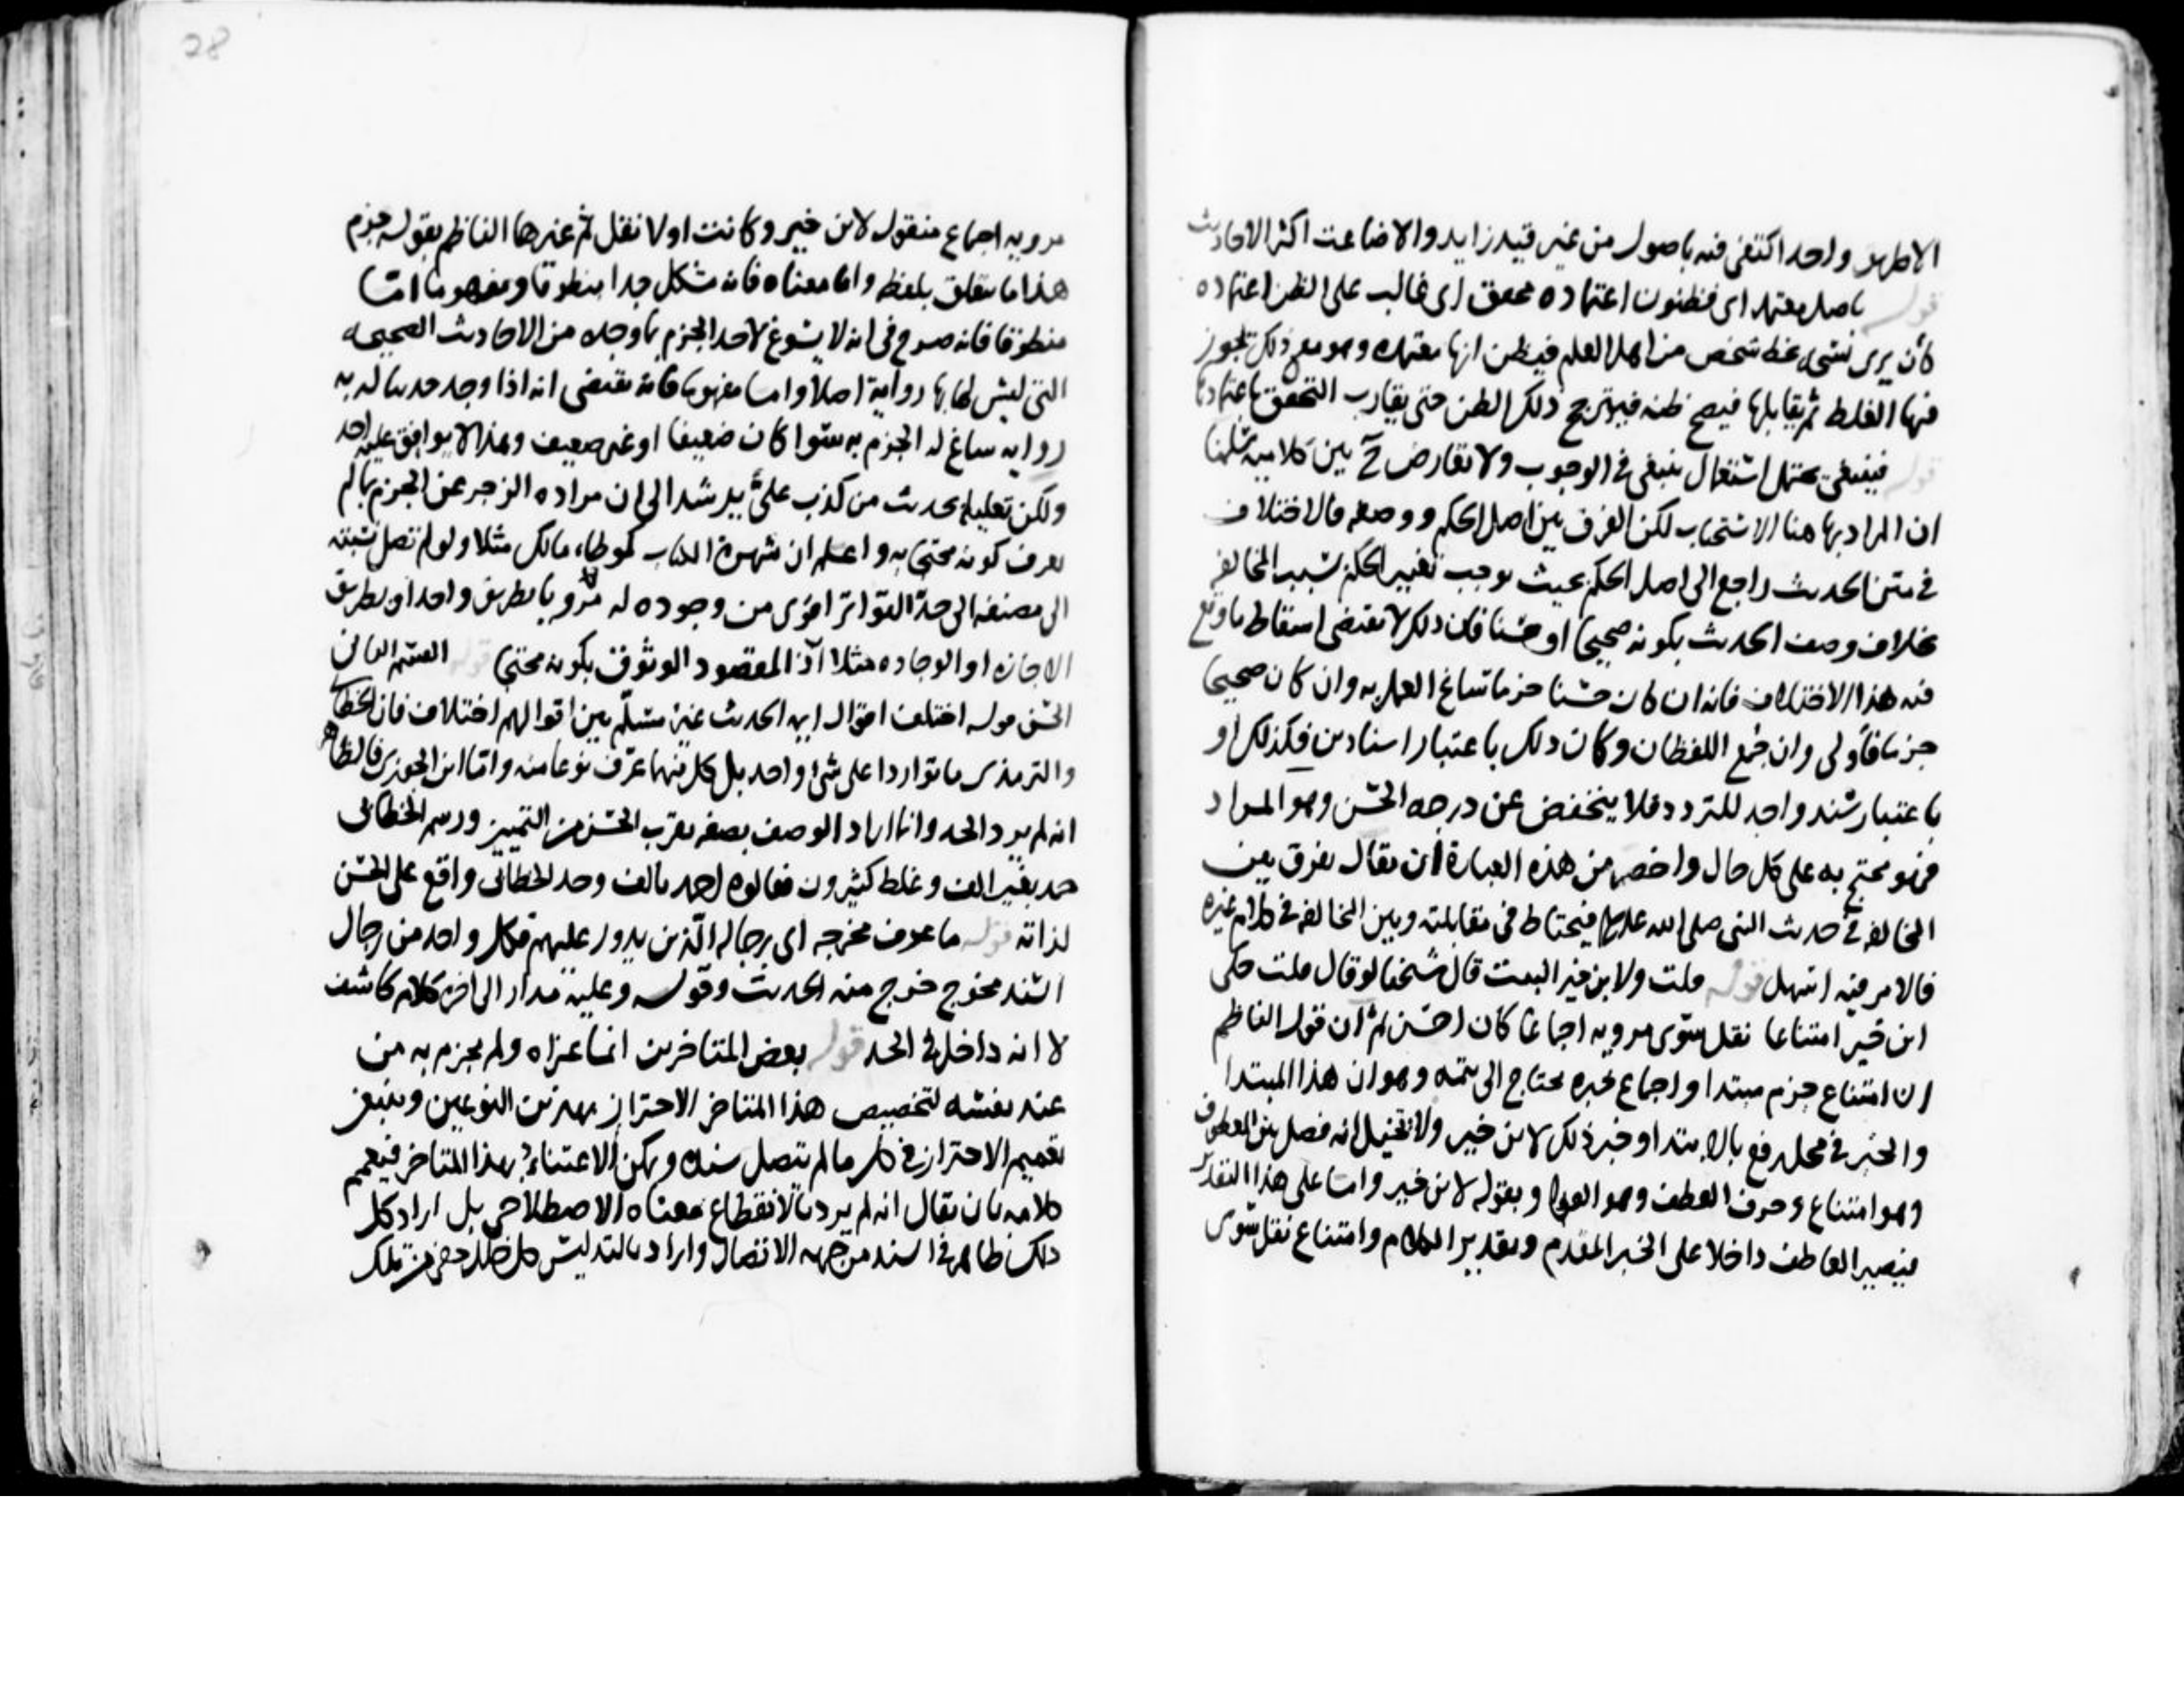 الاطهر واحد اكتفى فيه باصول من غير قيد زايد والا ضاعت اكثر الاحاديث
قوله باصل معتمد اى مظنون اعتماده محقق اى غالب على الظن اعتماده
كأن يرى نسخه بخط شخص من اهل العلم فيظن انها معتمده وهو مع ذلك يجوز
فيها الغلط ثم يقابلها فيصح ظنه فيترجح ذلك الظن حتى يقارب التحقق باعتمادها
قوله فينبغى يحتمل استعمال ينبغى فى الوجوب ولا تعارض ح بين كلاميه سلمنا
ان المراد بها هنا الاستحباب لكن الفرق بين اصل الحكم ووصفه فالاختلاف
فى متن الحديث راجع الى اصل الحكم بحيث يوجب تغيير الحكم بسبب المخالفه
بخلاف وصف الحديث بكونه صحيحا او حسنا فان ذلك لا يقتضى اسقاط ما وقع
فيه هذا الاختلاف فانه ان كان حسنا جزما ساغ العمل به وان كان صحيحا
جزما فأولى وان جُمع اللفظان وكان ذلك باعتبار اسنادين فكذلك او
باعتبار سند واحد للتردد فلا ينخفض عن درجه الحسن وهو المراد
فهو محتج به على كل حال واخصر من هذه العبارة ان يقال يفرق بين
المخالفه فى حديث النبى صلى الله عليه فيحتاط فى مقابلته وبين المخالفه فى كلام غيره
فالامر فيه اسهل قوله قلت ولابن خير البيت قال شيخنا لو قال قلت حكى
ابن خير امتناعا نقل سوى مرويه اجماعا كان احسن ثم ان قول الناظم
ان امتناع جزم مبتدا واجماع خبره محتاج الى تتمه وهو ان هذا المبتدا
والخبر فى محل رفع بالابتدا وخبر ذلك لابن خير ولا تتخيل انه فصل بين المعطوف
وهو امتناع وحرف العطف وهو الواو بقوله لابن خير واما على هذا التقدير
فيصير العاطف داخلا على الخبر المقدم وتقدير الكلام وامتناع نقل سوى
28
مرويه اجماع منقول لابن خير وكانت اولا نقل ثم غيرها الناظم بقوله جزم
هذا ما يتعلق بلفظه واما معناه فانه مشكل جدا منطوقا ومفهوما اما
منطوقا فانه صرح فى انه لا يسوغ لاحد الجزم بما وجده من الاحاديث الصحيحه
التى ليس له بها رواية اصلا واما مفهوما فانه يقتضى انه اذا وجد حديثا له به
روايه ساغ له الجزم به سوا كان ضعيفا او غير ضعيف وهذا لا يوافق عليه احد
ولكن تعليله بحديث من كذب علىَّ يرشد الى ان مراده الزجر عن الجزم بما لم
يعرف كونه محتجا به واعلم ان شهرة الكتاب كموطاء مالك مثلا ولو لم تصل نسبته
الى مصنفه الى حدّ التواتر اقوى من وجوده له مرويا بطريق واحد او بطريق
الاجازه او الوجاده مثلا اذ المقصود الوثوق بكونه محتجا قوله القسم الثانى
الحسن قوله اختلف اقوال ايمه الحديث غير مسلّم بين اقوالهم اختلاف فان الخطابى
والترمذى ما تواردا على شىء واحد بل كل منهما عرّف نوعا منه واما ابن الجوزى فالظاهر
انه لم يرد الحد وانما اراد الوصف بصفه تقرب الحسن من التمييز ورسم الخطابى
حمد بغير الف وغلط كثيرون فقالوه احمد بالف وحد الخطابى واقع على الحسن
لذاته قوله ما عرف مخرجه اى رجاله الذين يدور عليهم فكل واحد من رجال
السند مخرج خرج منه الحديث وقوله وعليه مدار الى اخره كلام كاشف
لا انه داخل فى الحد قوله بعض المتاخرين انما عزاه ولم يجزم به من
عند نفسه لتخصيص هذا المتاخر الاحتراز بهذين النوعين وينبغى
تعميم الاحتراز فى كل ما لم يتصل سنده ويمكن الاعتناء بهذا المتاخر فيعمم
كلامه بان يقال انه لم يرد بالانقطاع معناه الاصطلاحى بل اراد كل
ذلك ظاهر فى السند من جهه الاتصال واراد بالتدليس كل خلل خفى من تلك